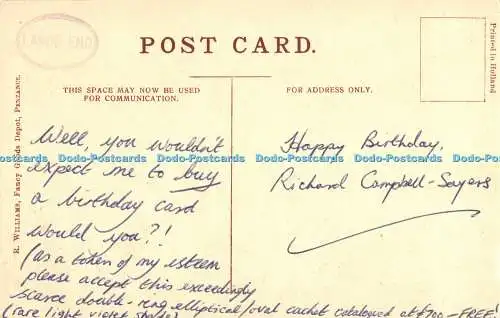 LAND'S END
POST CARD.
THIS SPACE MAY NOW BE USED
FOR COMMUNICATION.
FOR ADDRESS ONLY.
Printed in Holland
R. WILLIAMS, Fancy Goods Depot, PENZANCE.
Well, you wouldn't
expect me to buy
a birthday card
would you?!
(as a token of my esteem
please accept this exceedingly
scarce double-ring elliptical/oval cachet catalogued at £700 - FREE!
(rare light violet shade)
Happy Birthday,
Richard Campbell-Sayers
Dodo-Postcards Dodo-Postcards Dodo-Postcards Dodo-Postcards Dodo-Postcards